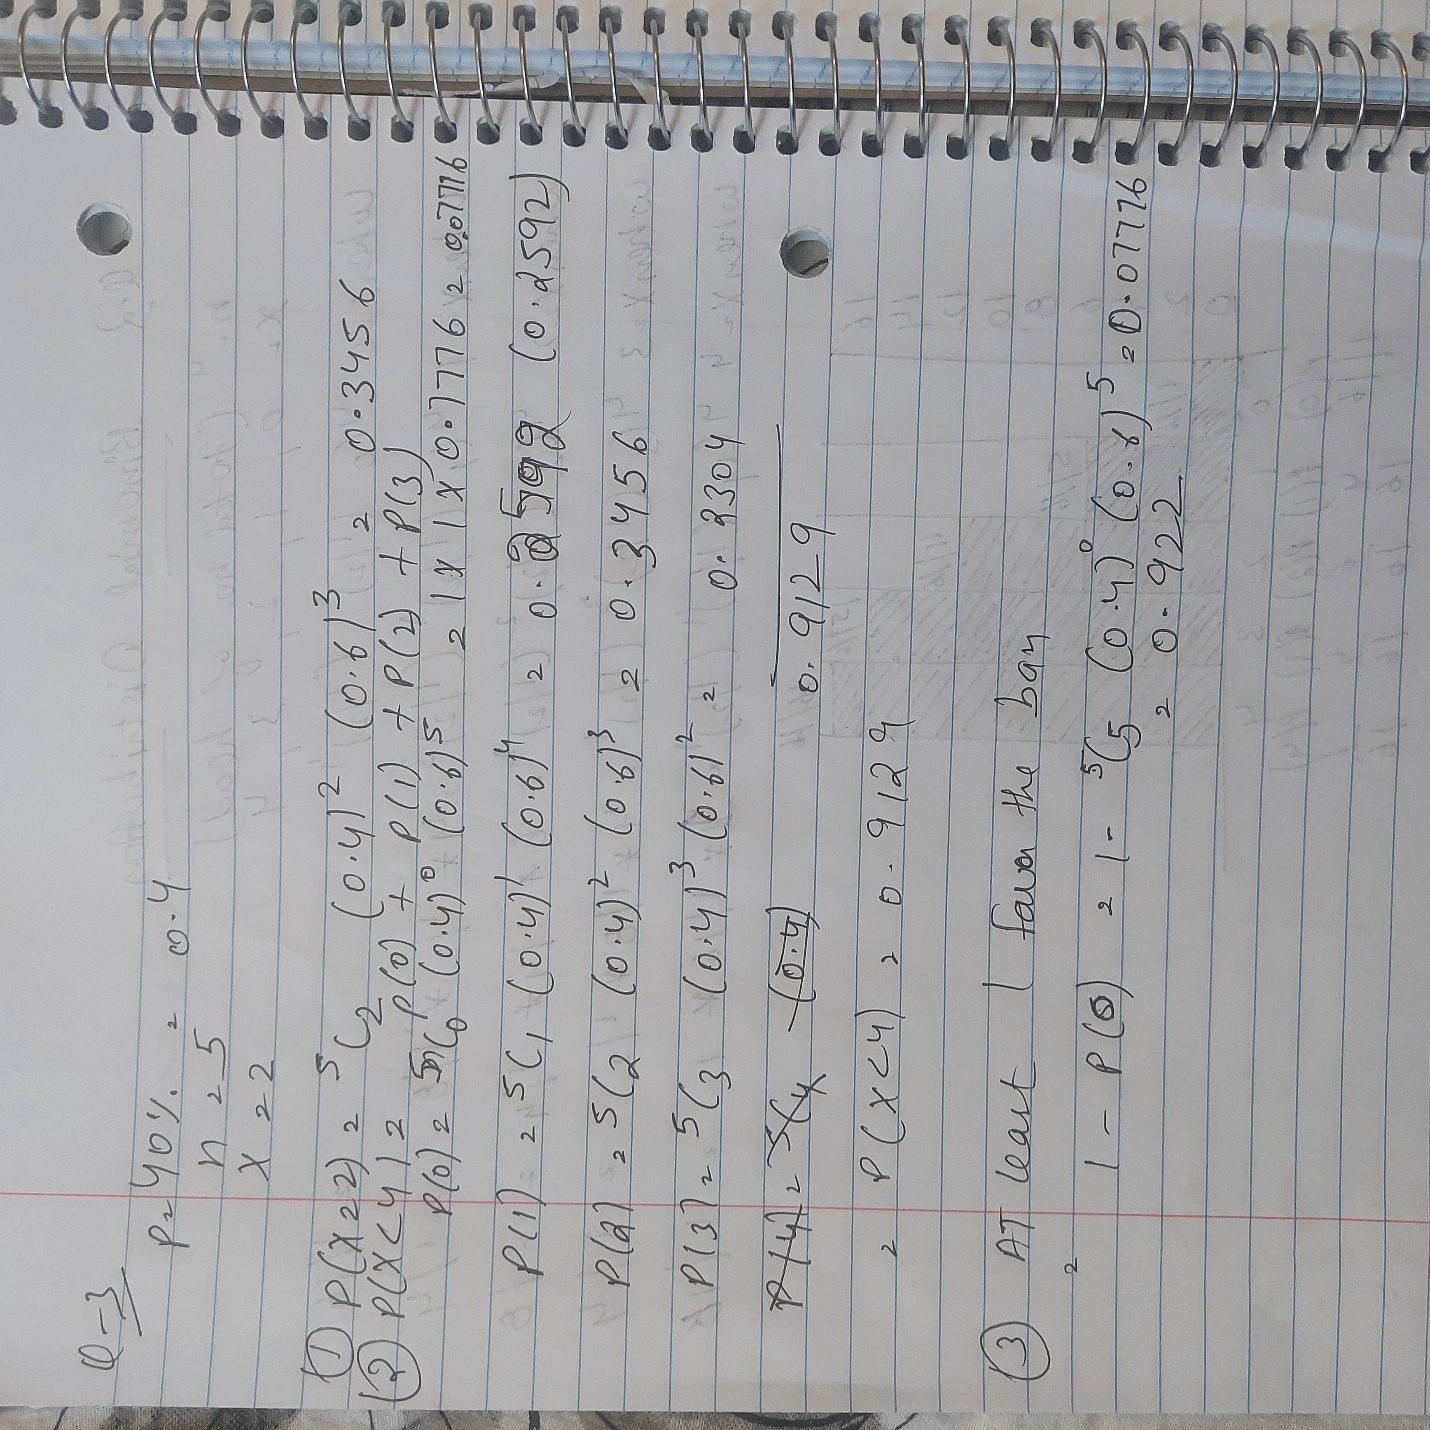 Q-3
P = 40% = 0.4
n = 5
X = 2
(1) P(X=2) = ⁵C₂ (0.4)² (0.6)³ = 0.3456
(2) P(X<4) = P(0) + P(1) + P(2) + P(3)
P(0) = ⁵C₀ (0.4)⁰ (0.6)⁵ = 1 x 1 x 0.7776 = 0.07776
P(1) = ⁵C₁ (0.4)¹ (0.6)⁴ = 0.2592 (0.2592)
P(2) = ⁵C₂ (0.4)² (0.6)³ = 0.3456
P(3) = ⁵C₃ (0.4)³ (0.6)² = 0.2304
P(4) = ⁵C₄ (0.4)
0.9129
= P(X<4) = 0.9129
(3) AT least 1 favor the ban
= 1 - P(0) = 1 - ⁵C₅ (0.4)⁰ (0.6)⁵ = 0.07776
= 0.922